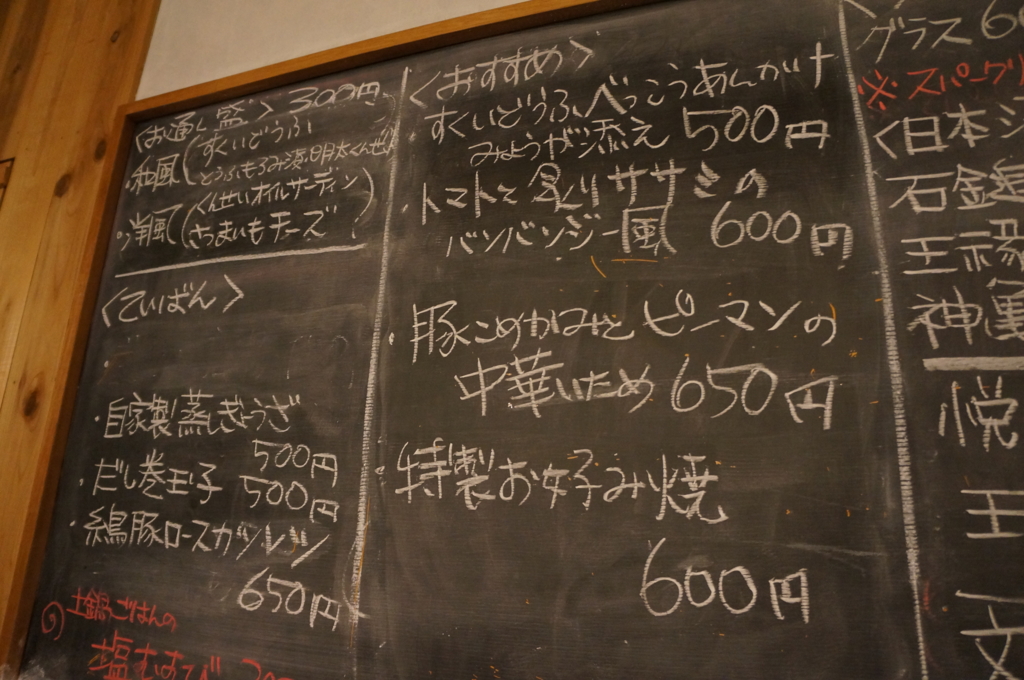 〈お通し盛〉300円
・和風(すくいどうふ
とうふもろみ漬、明太くんせい)
・洋風(くんせいオイルサーディン
さつまいもチーズ)
〈ていばん〉
・
・自家製蒸しぎょうざ
500円
・だし巻玉子 500円
・縞豚ロースカツレツ
650円
土鍋ごはんの
塩むすび
〈おすすめ〉
すくいどうふべっこうあんがけ
みょうが添え 500円
・トマトと炙りササミの
バンバンジー風 600円
・豚こめかみとピーマンの
中華いため 650円
・特製お好み焼
600円
グラス 60
※スパークリ
〈日本シ
石金
王禄
神亀
悦
王
文